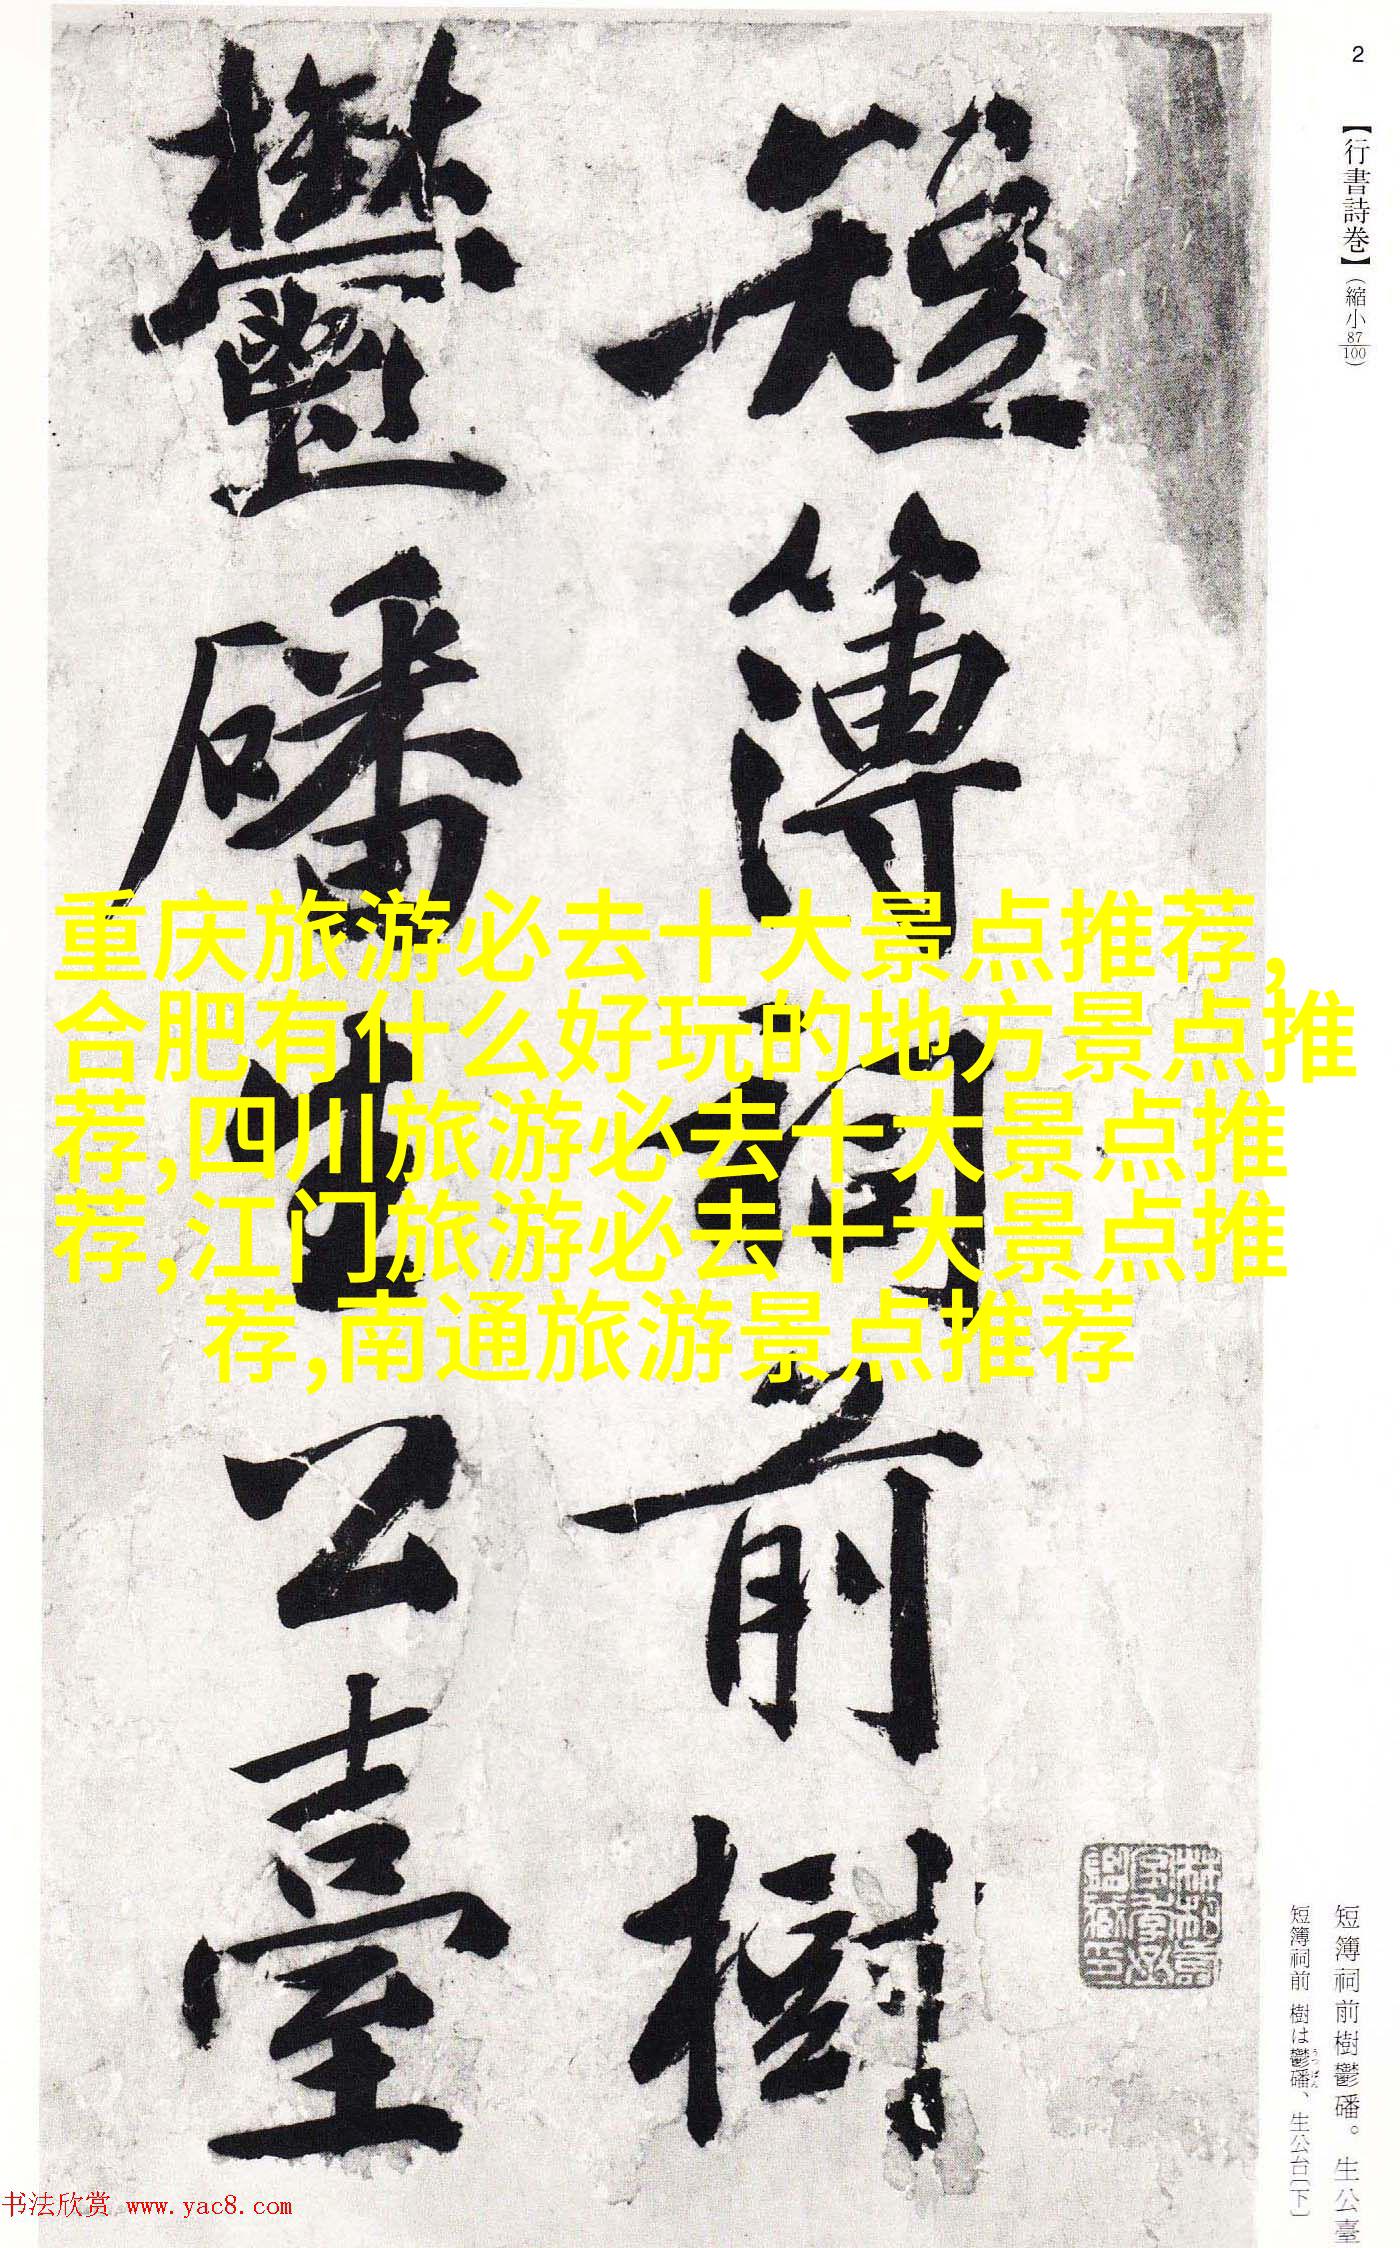 2
【行書詩巻】（縮小87/100）
短簿祠前樹
鬱磻生公臺
重庆旅游必去十大景点推荐,
合肥有什么好玩的地方景点推
荐,四川旅游必去十大景点推
荐,江门旅游必去十大景点推
荐,南通旅游景点推荐
短簿祠前樹鬱磻。生公臺
短簿祠前 樹は鬱磻、生公台〔下〕
书法欣赏 www.yac8.com